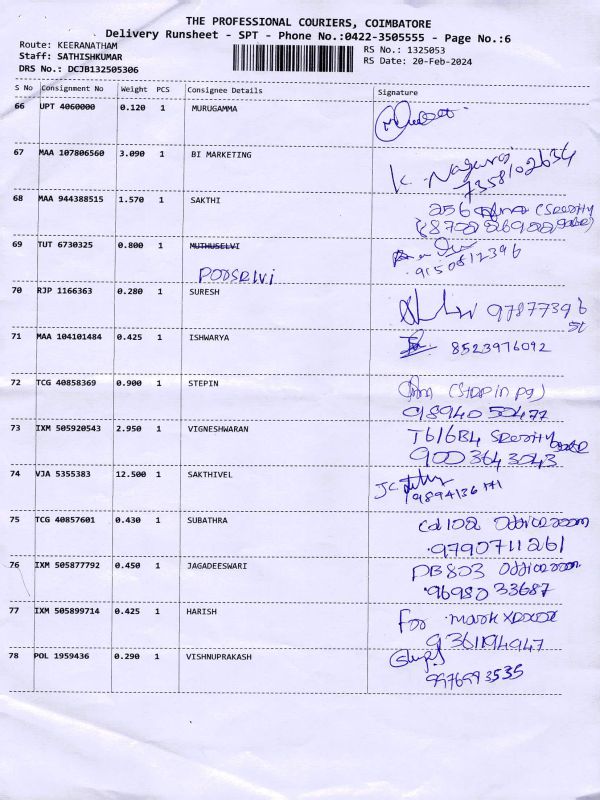 THE PROFESSIONAL COURIERS, COIMBATORE
Delivery Runsheet - SPT - Phone No.:0422-3505555 - Page No.:6
Route: KEERANATHAM
RS No.: 1325053
Staff: SATHISHKUMAR
RS Date: 20-Feb-2024
DRS No.: DCJB132505306
S No Consignment No Weight PCS Consignee Details Signature
66 UPT 4060000 0.120 1 MURUGAMMA
67 MAA 107806560 3.090 1 BI MARKETING
K. Nagaraj
7358102634
68 MAA 944388515 1.570 1 SAKTHI
256
69 TUT 6730325 0.800 1 MUTHUSELVI
9150812396
POOSELVI
70 RJP 1166363 0.280 1 SURESH
97877396
51
71 MAA 104101484 0.425 1 ISHWARYA
8523976092
72 TCG 40858369 0.900 1 STEPIN
(Stapin pg)
73 IXM 505920543 2.950 1 VIGNESHWARAN
T616B4
9003643043
74 VJA 5355383 12.500 1 SAKTHIVEL
75 TCG 40857601 0.430 1 SUBATHRA
officeroom
9790711261
76 IXM 505877792 0.450 1 JAGADEESWARI
PB803 officeroom
9698033687
77 IXM 505899714 0.425 1 HARISH
For mark
9361194947
78 POL 1959436 0.290 1 VISHNUPRAKASH
9976983535